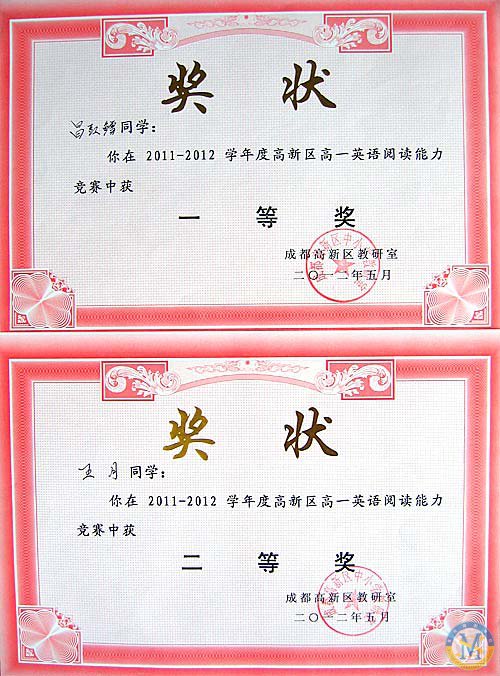 奖 状
同学:
你在 2011-2012 学年度高新区高一英语阅读能力
竞赛中获
一 等 奖
成都高新区教研室
二〇一二年五月
奖 状
王 月 同学:
你在 2011-2012 学年度高新区高一英语阅读能力
竞赛中获
二 等 奖
成都高新区教研室
二〇一二年五月